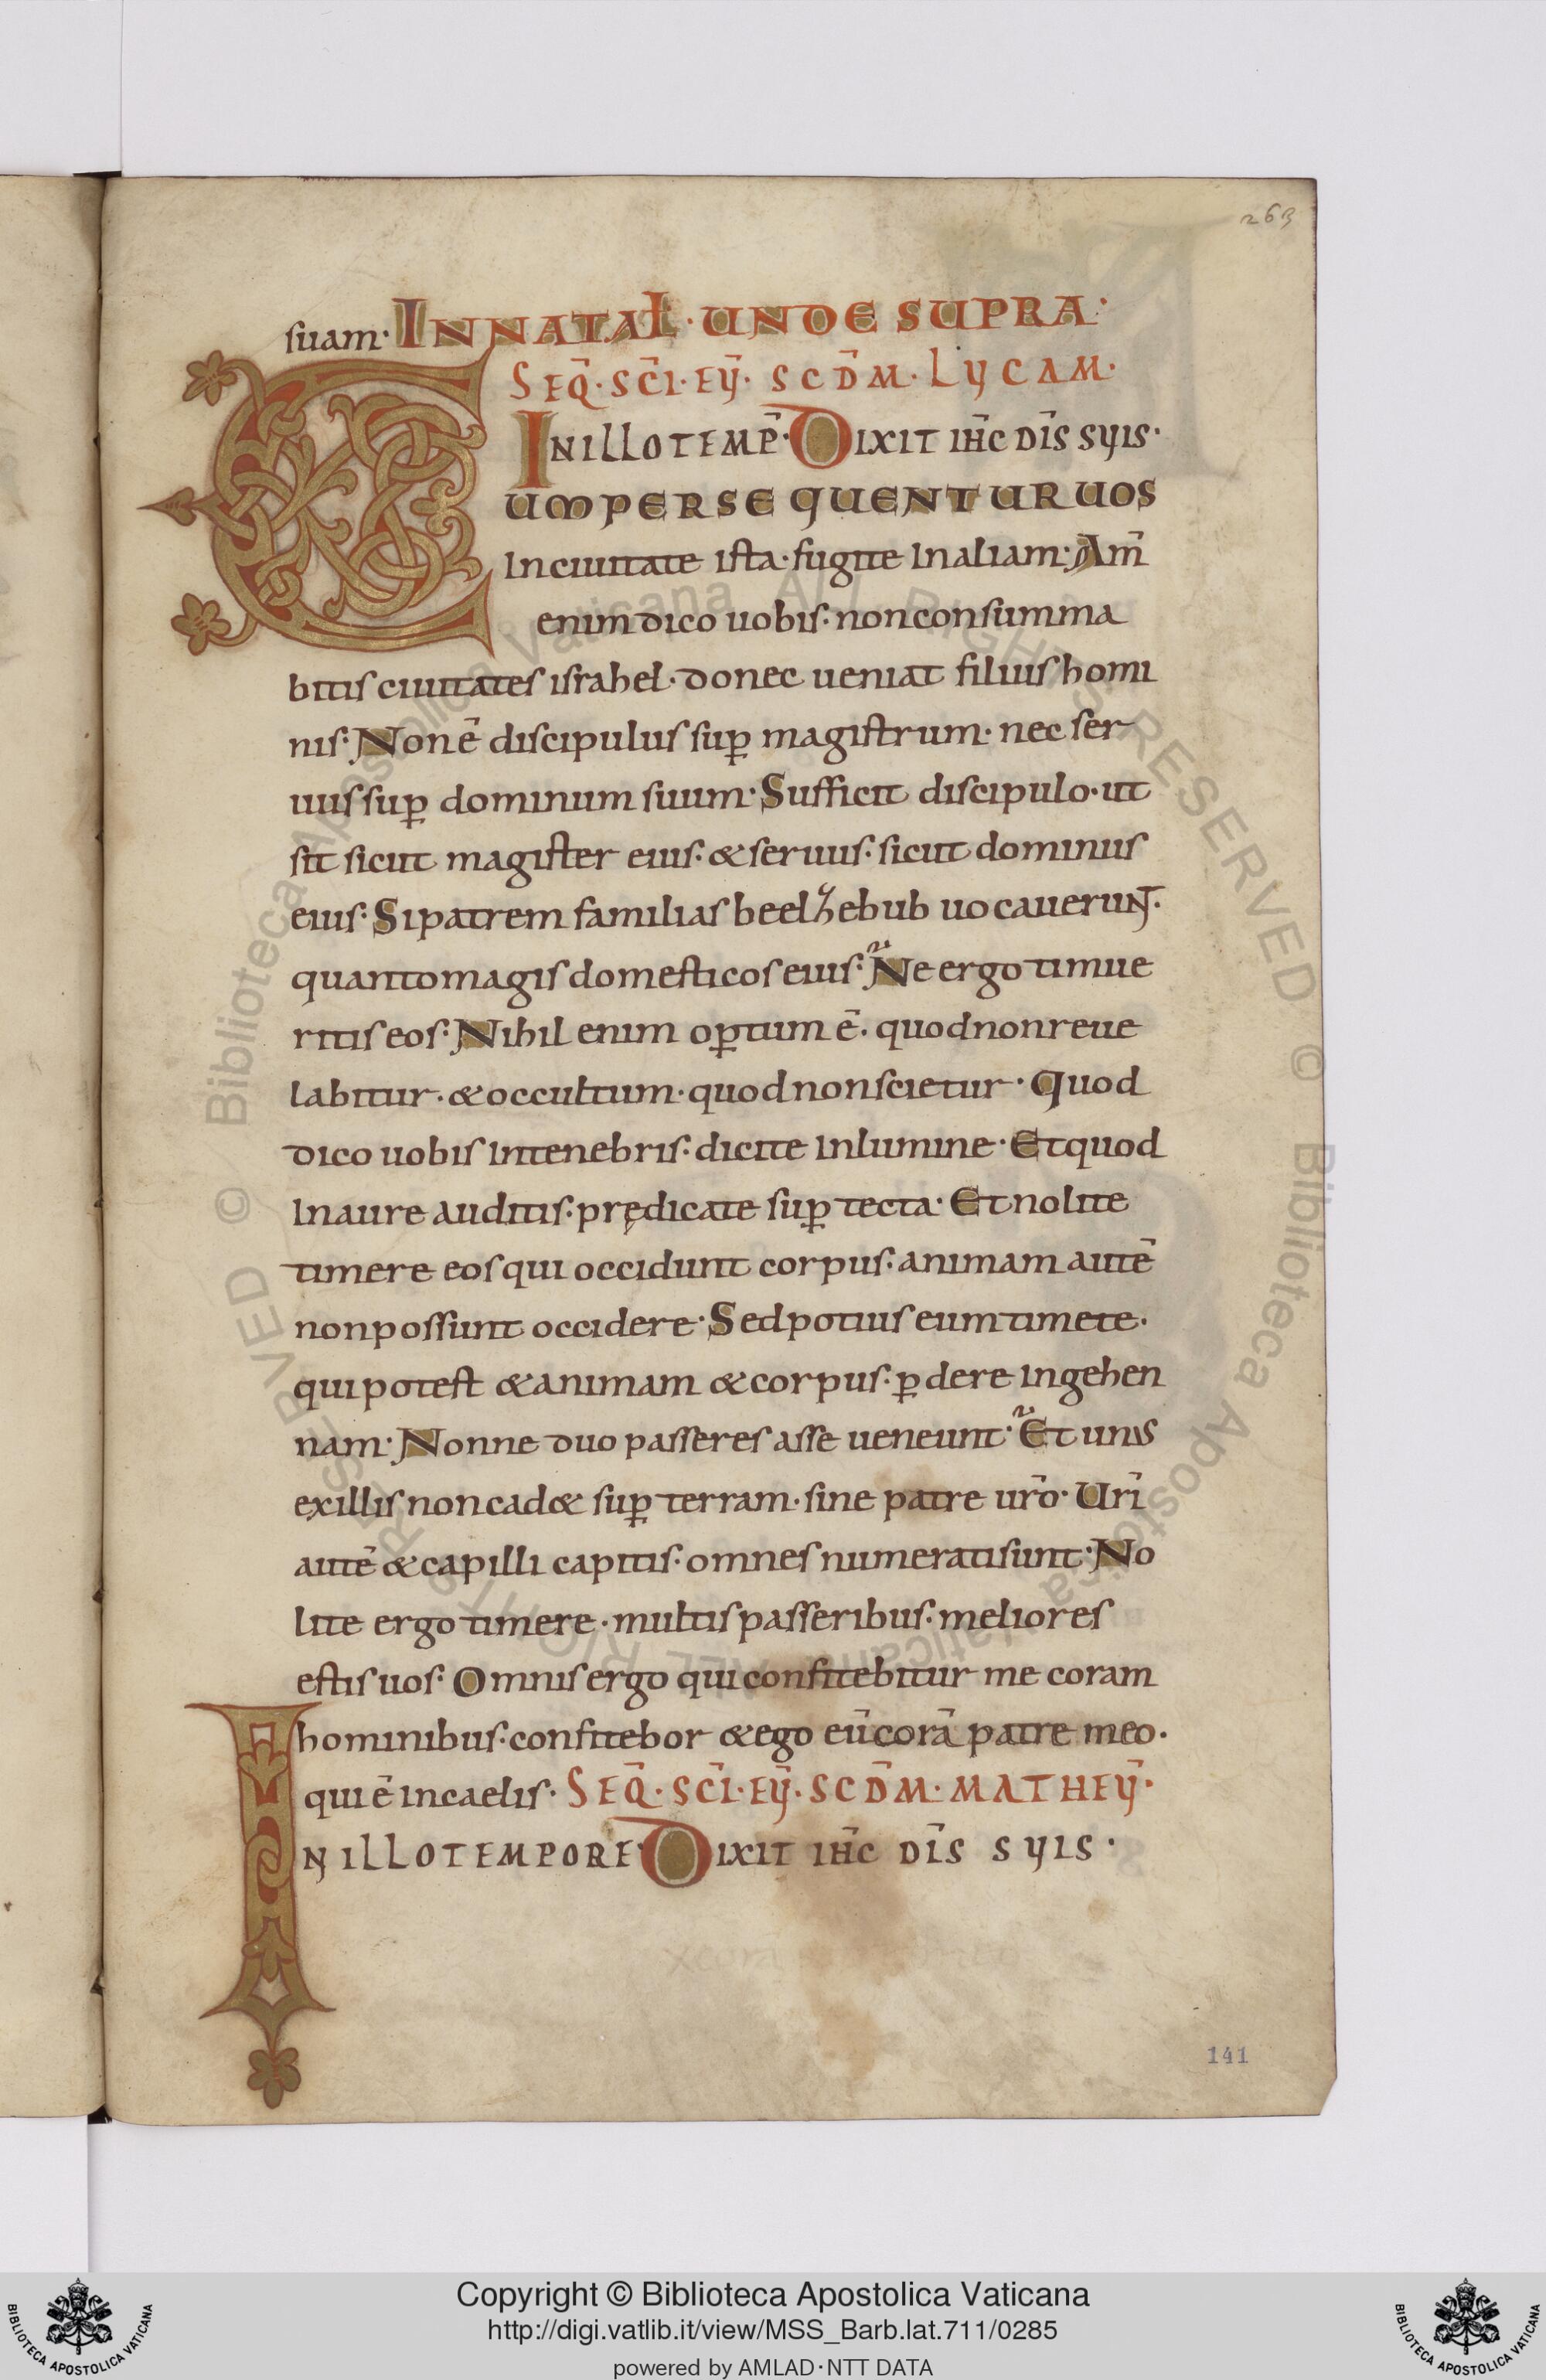 263
suam· IN NATAŁ· UNDE SUPRA·
SEQ̄· SC̄I· EV̄· SCD̄M· LVCAM·
IN ILLO TEMP̄· DIXIT IH̄C DIS̄ SVIS·
CUM PERSEQUENTUR UOS
In ciuitate ista· fugite In aliam· Am̄
enim dico uobis· non consumma
bitis ciuitates israhel· donec ueniat filius homi
nis· Non ē discipulus sup̱ magistrum· nec ser
uus sup̱ dominum suum· Sufficit discipulo· ut
sit sicut magister eius· & seruus· sicut dominus
eius· Si patrem familias beelzebub uocauerunt·
quanto magis domesticos eius· Ne ergo timue
ritis eos· Nihil enim op̱tum ē· quod non reue
labitur· & occultum· quod non scietur· Quod
dico uobis In tenebris· dicite In lumine· Et quod
In aure auditis· prędicate sup̱ tecta· Et nolite
timere eos qui occidunt corpus· animam autē
non possunt occidere· Sed potius eum timete·
qui potest & animam & corpus· p̱dere In gehen
nam· Nonne duo passeres asse ueneunt· Et unus
ex illis non cad& sup̱ terram· sine patre ur̄o· Ur̄i
autē & capilli capitis· omnes numerati sunt· No
lite ergo timere· multis passeribus· meliores
estis uos· Omnis ergo qui confitebitur me coram
hominibus· confitebor & ego eū corā patre meo·
qui ē In caelis· SEQ̄· SC̄I· EV̄· SCD̄M· MATHEV̄·
IN ILLO TEMPORE· DIXIT IH̄C DIS̄ SVIS·
141
© Biblioteca Apostolica Vaticana ALL RIGHTS RESERVED © Biblioteca Apostolica Vaticana ALL RIGHTS RESERVED
Copyright © Biblioteca Apostolica Vaticana
http://digi.vatlib.it/view/MSS_Barb.lat.711/0285
powered by AMLAD·NTT DATA
BIBLIOTECA APOSTOLICA VATICANA
BIBLIOTECA APOSTOLICA VATICANA